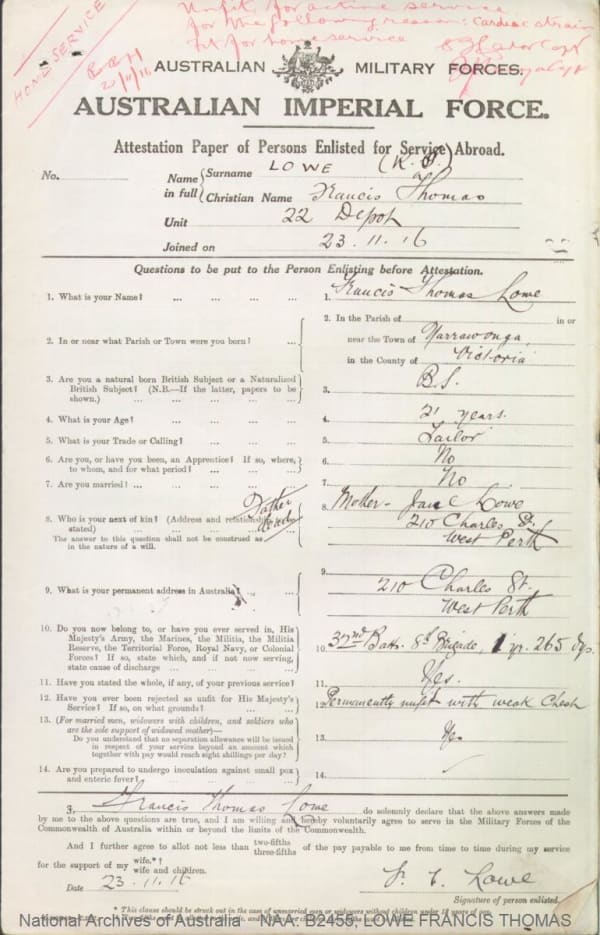 Unfit for active service
for the following reason: Cardiac strain
fit for home service
HOME SERVICE
21/11/16
AUSTRALIAN MILITARY FORCES.
AUSTRALIAN IMPERIAL FORCE.
Attestation Paper of Persons Enlisted for Service Abroad.
No. Name in full { Surname LOWE
Christian Name Francis Thomas
Unit 22 Depot
Joined on 23.11.16
Questions to be put to the Person Enlisting before Attestation.
1. What is your Name? ... ... ... ... 1. Francis Thomas Lowe
2. In or near what Parish or Town were you born? ... 2. In the Parish of in or
near the Town of Yarrawonga,
in the County of Victoria
3. Are you a natural born British Subject or a Naturalized
British Subject? (N.B.—If the latter, papers to be
shown.) ... ... ... ... 3. B.S.
4. What is your Age? ... ... ... ... 4. 21 years.
5. What is your Trade or Calling? ... ... ... 5. Tailor
6. Are you, or have you been, an Apprentice? If so, where,
to whom, and for what period? ... ... ... 6. No
7. Are you married? ... ... ... ... 7. No.
8. Who is your next of kin? (Address and relationship
stated) ... ... ... ...
The answer to this question shall not be construed as
in the nature of a will.
Father
8. Mother - Jane Lowe
210 Charles St.
West Perth
9. What is your permanent address in Australia? ... 9. 210 Charles St.
West Perth
10. Do you now belong to, or have you ever served in, His
Majesty's Army, the Marines, the Militia, the Militia
Reserve, the Territorial Force, Royal Navy, or Colonial
Forces? If so, state which, and if not now serving,
state cause of discharge ... ... ... 10. Brigade, 1 yr. 265 dys.
11. Have you stated the whole, if any, of your previous service? 11. Yes.
12. Have you ever been rejected as unfit for His Majesty's
Service? If so, on what grounds? ... ... 12. Permanently unfit with weak Chest
13. (For married men, widowers with children, and soldiers who
are the sole support of widowed mother)—
Do you understand that no separation allowance will be issued
in respect of your service beyond an amount which
together with pay would reach eight shillings per day? 13. Yes
14. Are you prepared to undergo inoculation against small pox
and enteric fever? ... ... ... ... 14.
I, Francis Thomas Lowe do solemnly declare that the above answers made
by me to the above questions are true, and I am willing and hereby voluntarily agree to serve in the Military Forces of the
Commonwealth of Australia within or beyond the limits of the Commonwealth.
And I further agree to allot not less than two-fifths three-fifths of the pay payable to me from time to time during my service
for the support of my wife.*† wife and children.
Date 23.11.16 F. T. Lowe
Signature of person enlisted.
National Archives of Australia NAA: B2455, LOWE FRANCIS THOMAS